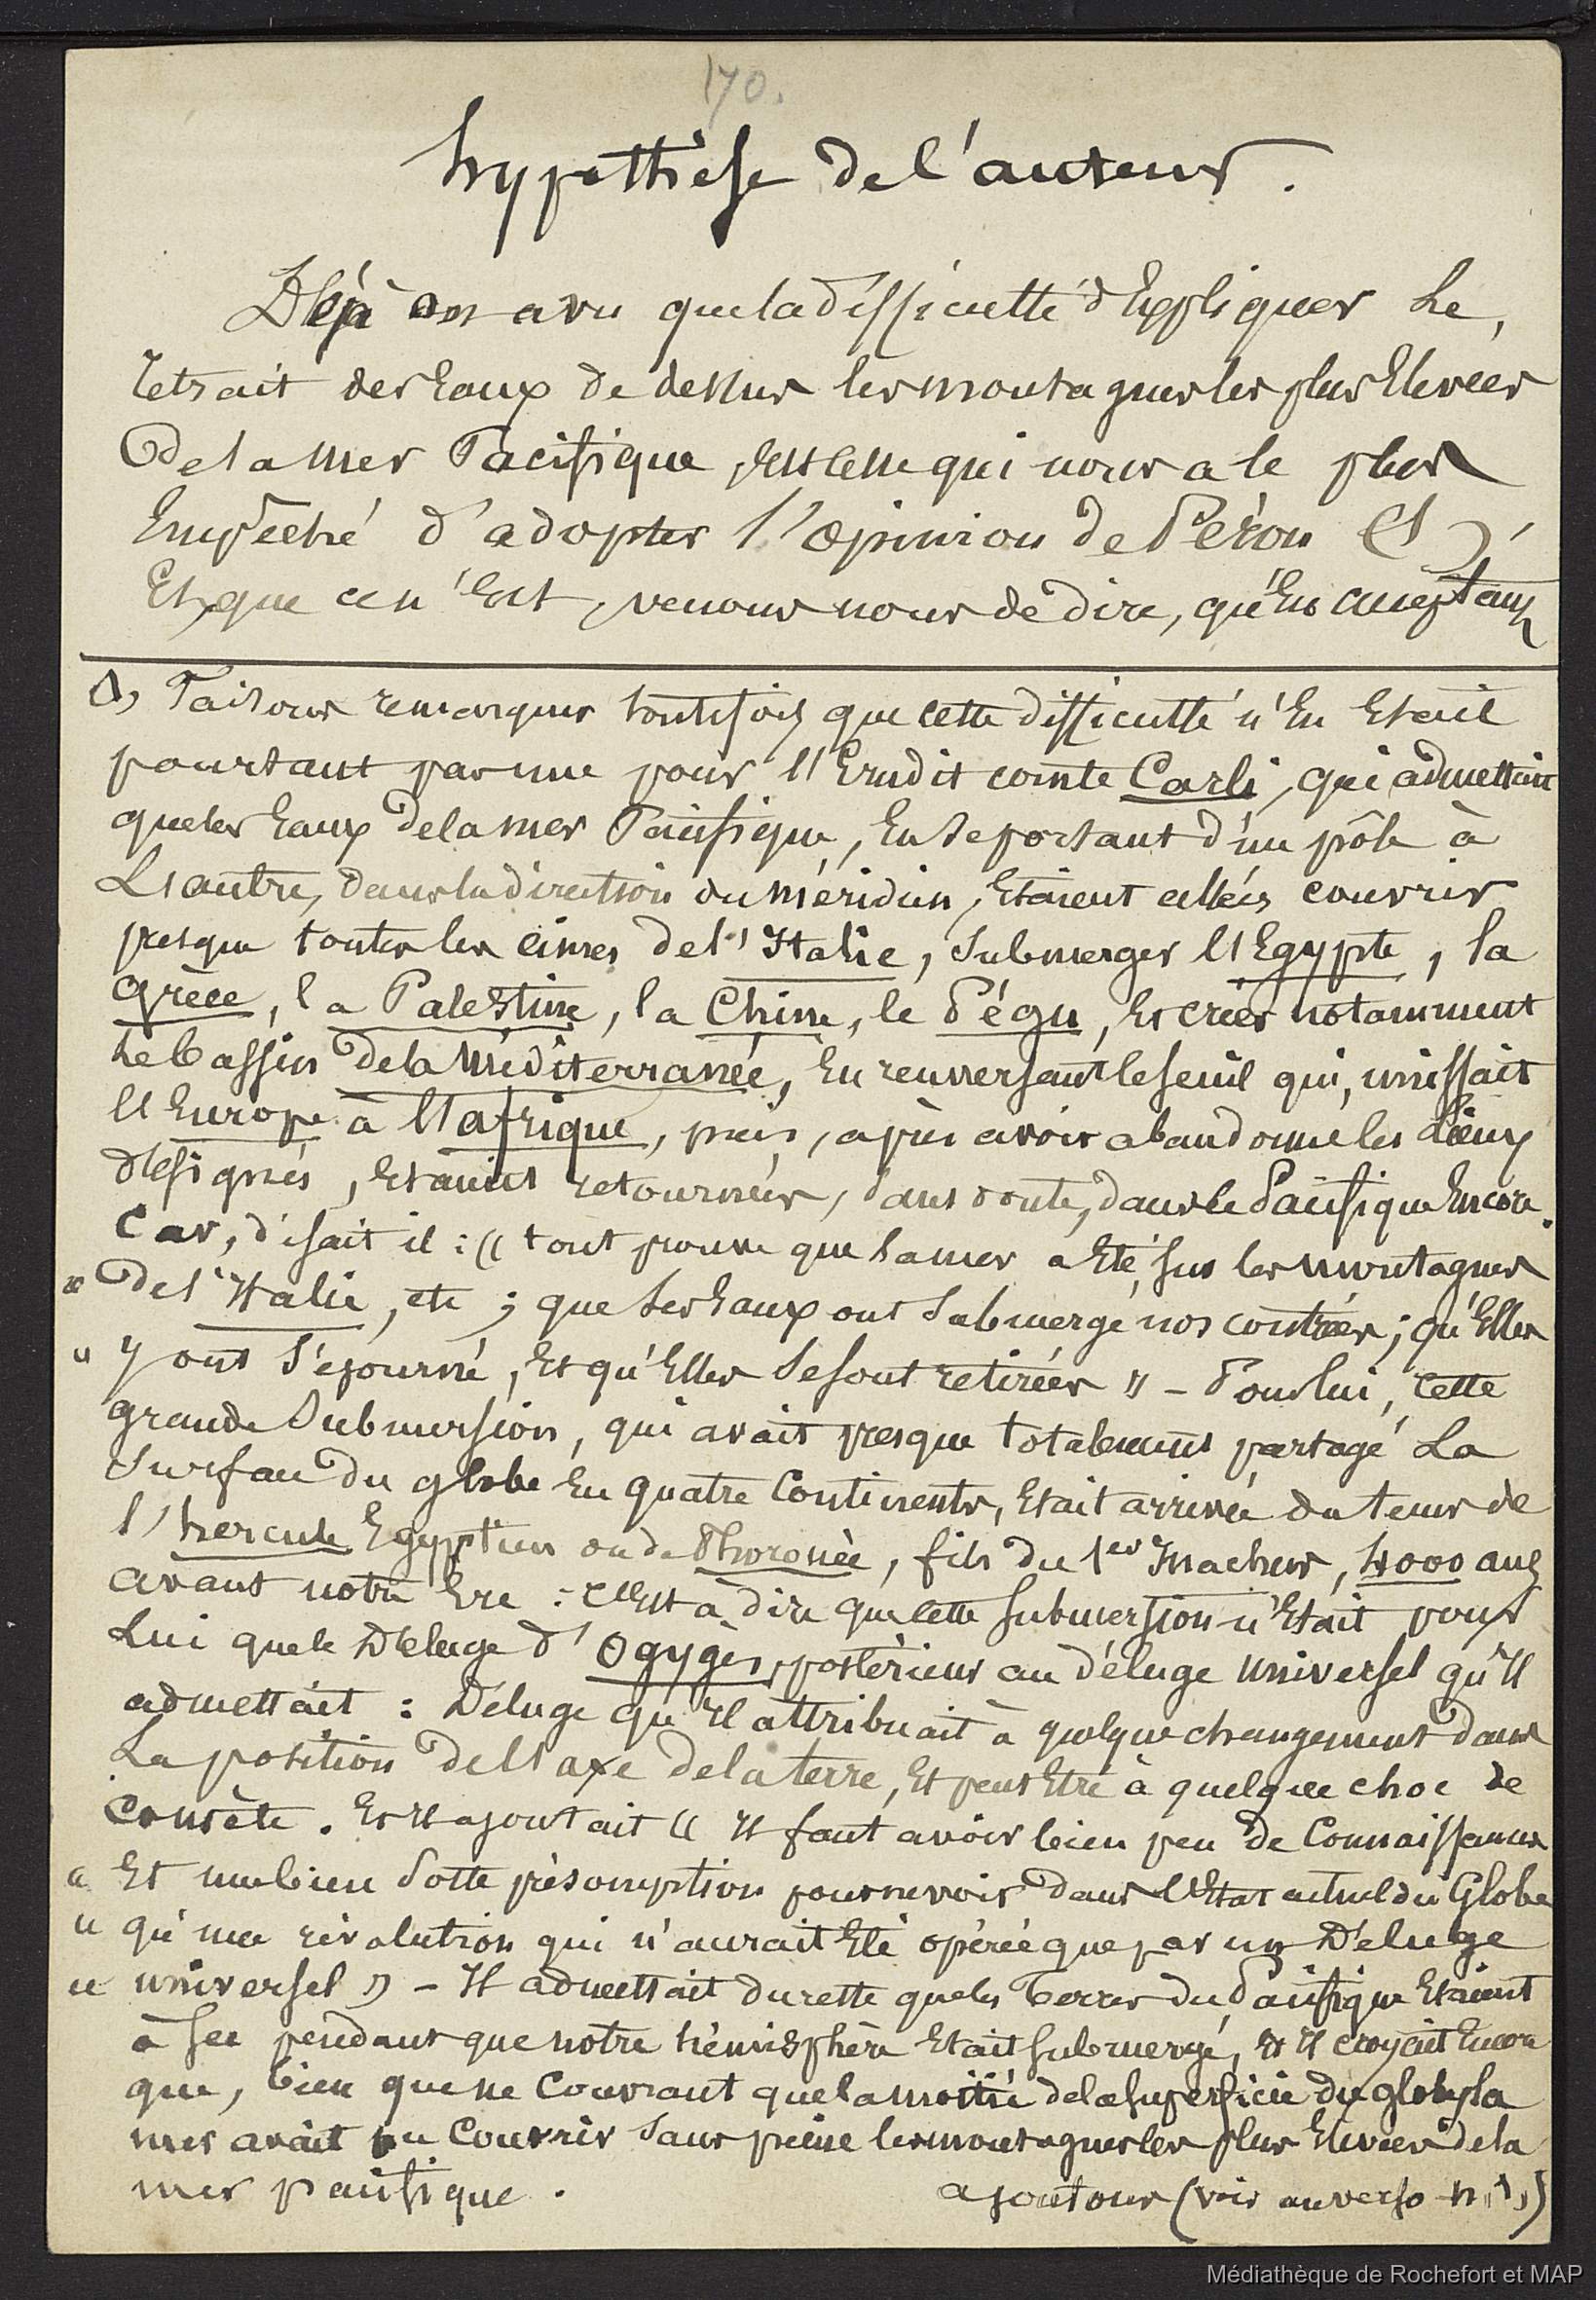 170.
hypothèse de l'auteur.
Déjà on a vu que la difficulté d'Expliquer Le,
retrait des Eaux de dessus les montagnes les plus Elevées
De la Mer Pacifique, est celle qui nous a le plus
Empêché d'adopter l'opinion de Péron (1)
Et que ce n'Est, venons nous de dire, qu'En acceptant
(1) Faisons remarquer toutefois que cette difficulté n'En Etait
pourtant pas une pour l'Erudit comte Carli, qui admettait
que les Eaux de la mer Pacifique, En se portant d'un pôle à
L'autre, dans la direction du méridien, Etaient allées couvrir
presque toutes les cimes de l'Italie, submerger l'Egypte, la
Grèce, la Palestine, la Chine, le Pégu, Et créer notamment
Le bassin De la Méditerranée, En renversant le seuil qui, unissait
l'Europe à l'Afrique, puis, après avoir abandonné les Lieux
désignés, Etaient retournées, sans doute, dans le Pacifique Encore.
Car, disait il : « tout prouve que la mer a Eté sur les montagnes
« De l'Italie, etc ; que les Eaux ont submergé nos contrées ; qu'Elles
« y ont séjourné, Et qu'Elles se sont retirées » - Pour lui, cette
grande submersion, qui avait presque totalement partagé La
surface Du globe En quatre Continents, Etait arrivée du tems de
l'hercule Egyptien ou de Phoronée, fils du 1er Inachus, 4000 ans
avant notre Ere : c'Est à dire que cette submersion n'Etait pour
Lui que le Déluge d'Ogygès, postérieur au déluge universel qu'Il
admettait : Déluge qu'Il attribuait à quelque changement dans
La position De l'axe de la terre, Et peut Etre à quelque choc de
Comète. Et Il ajoutait « Il faut avoir bien peu de Connaissances
« Et une bien sotte présomption pour ne voir dans l'Etat actuel du Globe
« qu'une révolution qui n'aurait Eté opérée que par un Déluge
« universel » - Il admettait du reste que les Terres du Pacifique Etaient
à sec pendant que notre hémisphère Etait submergé, Et Il croyait Encore
que, bien que ne Couvrant que la moitié de la superficie du globe, la
mer avait pu Couvrir sans peine les montagnes les plus Elevées de la
mer pacifique.
ajoutons (voir au verso n. 1,)
Médiathèque de Rochefort et MAP